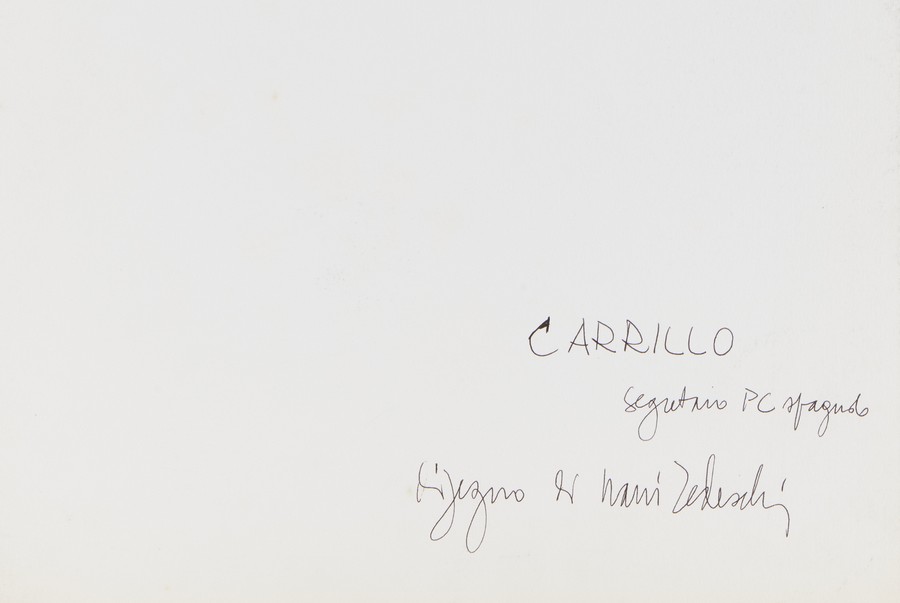 CARRILLO
segretario PC spagnolo
disegno di Nani Tedeschi